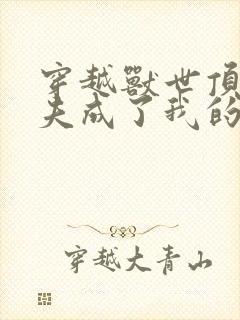 穿越獸世頂
夫成了我的
穿越大青山